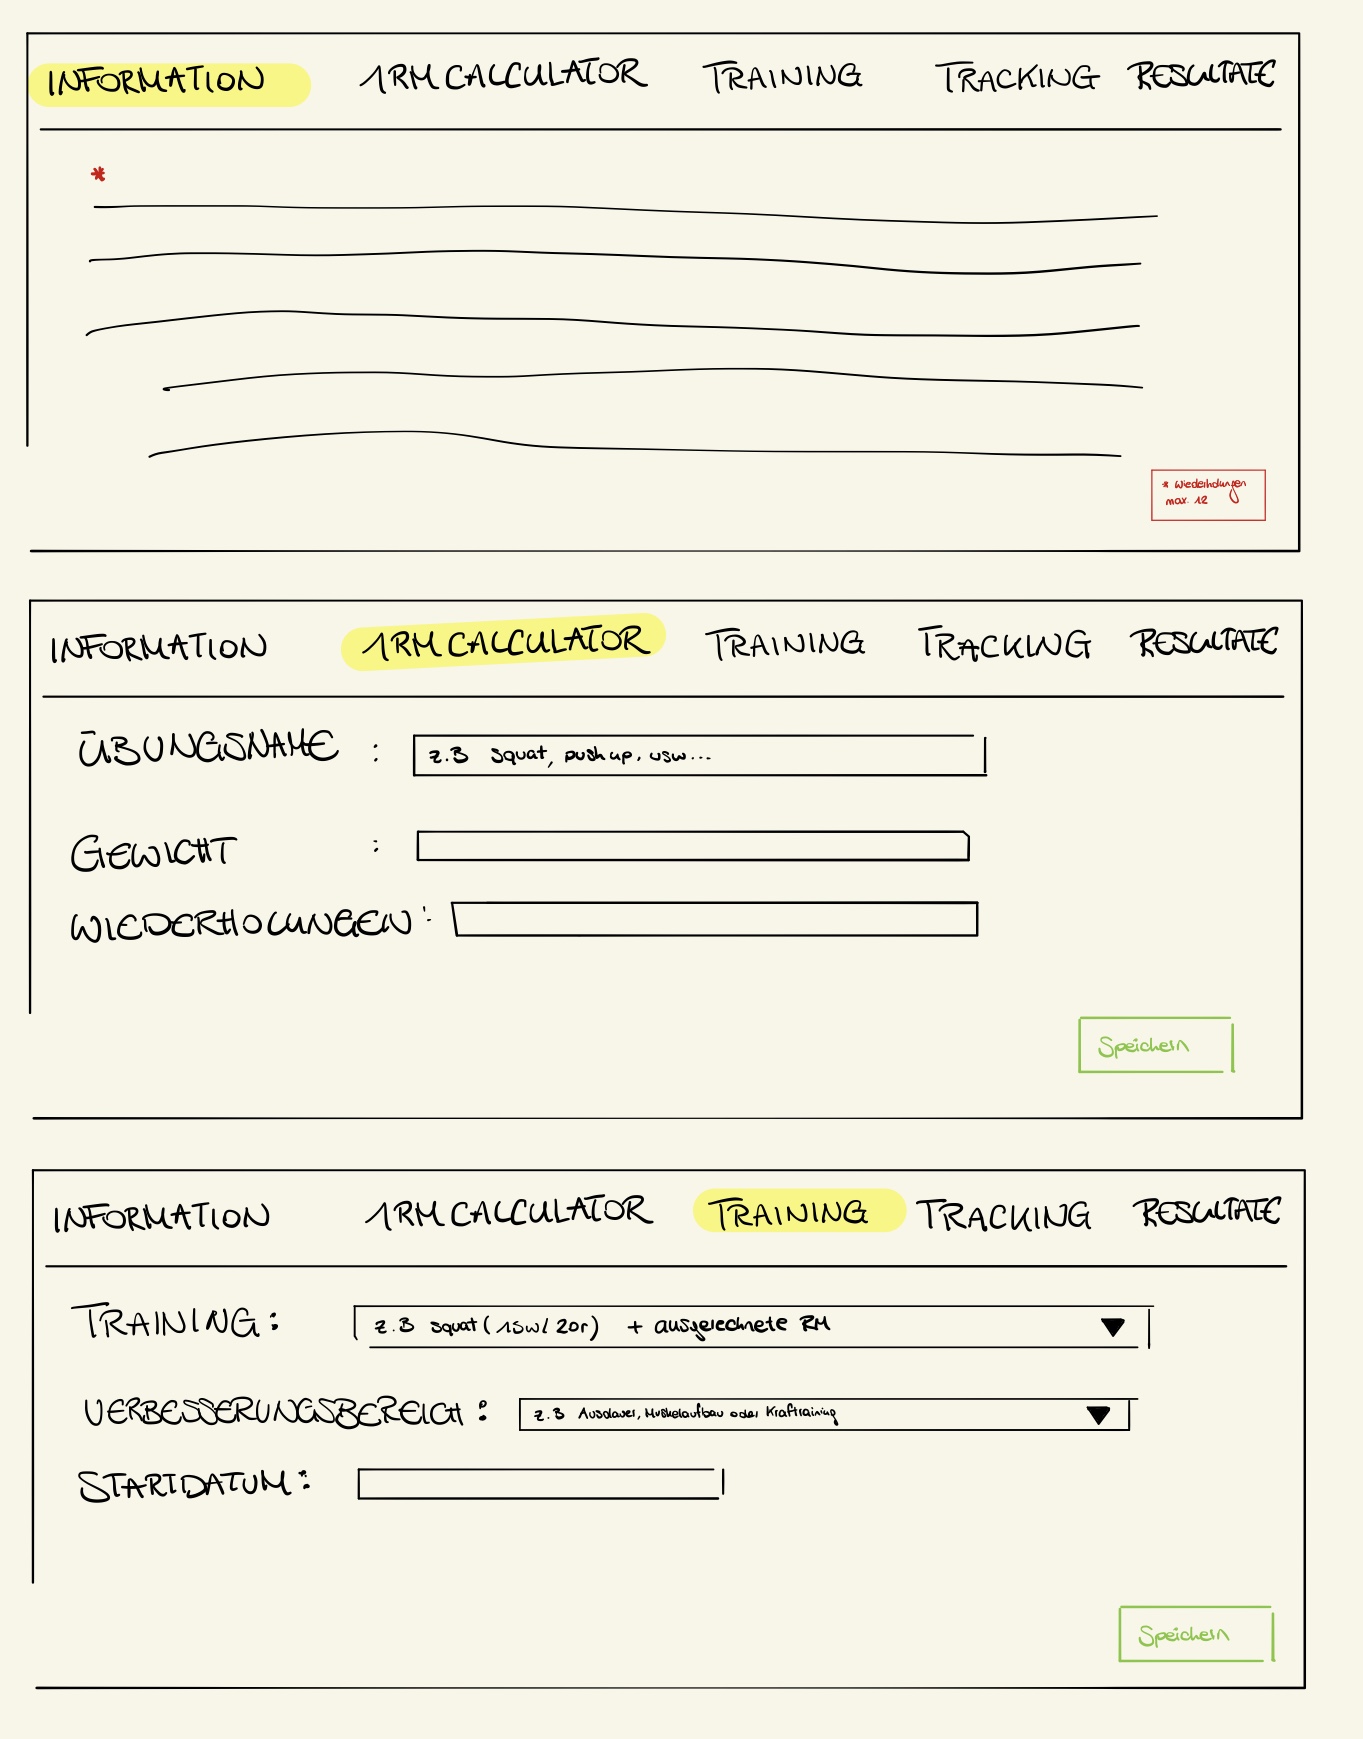 INFORMATION 1RM CALCULATOR TRAINING TRACKING RESULTATE
*
* Wiederholungen
max. 12
INFORMATION 1RM CALCULATOR TRAINING TRACKING RESULTATE
ÜBUNGSNAME : z.B squat, push up, usw...
GEWICHT :
WIEDERHOLUNGEN :
Speichern
INFORMATION 1RM CALCULATOR TRAINING TRACKING RESULTATE
TRAINING : z.B squat ( 15w/ 20r) + ausgerechnete RM
VERBESSERUNGSBEREICH : z.B Ausdauer, Muskelaufbau oder Krafttraining
STARTDATUM :
Speichern